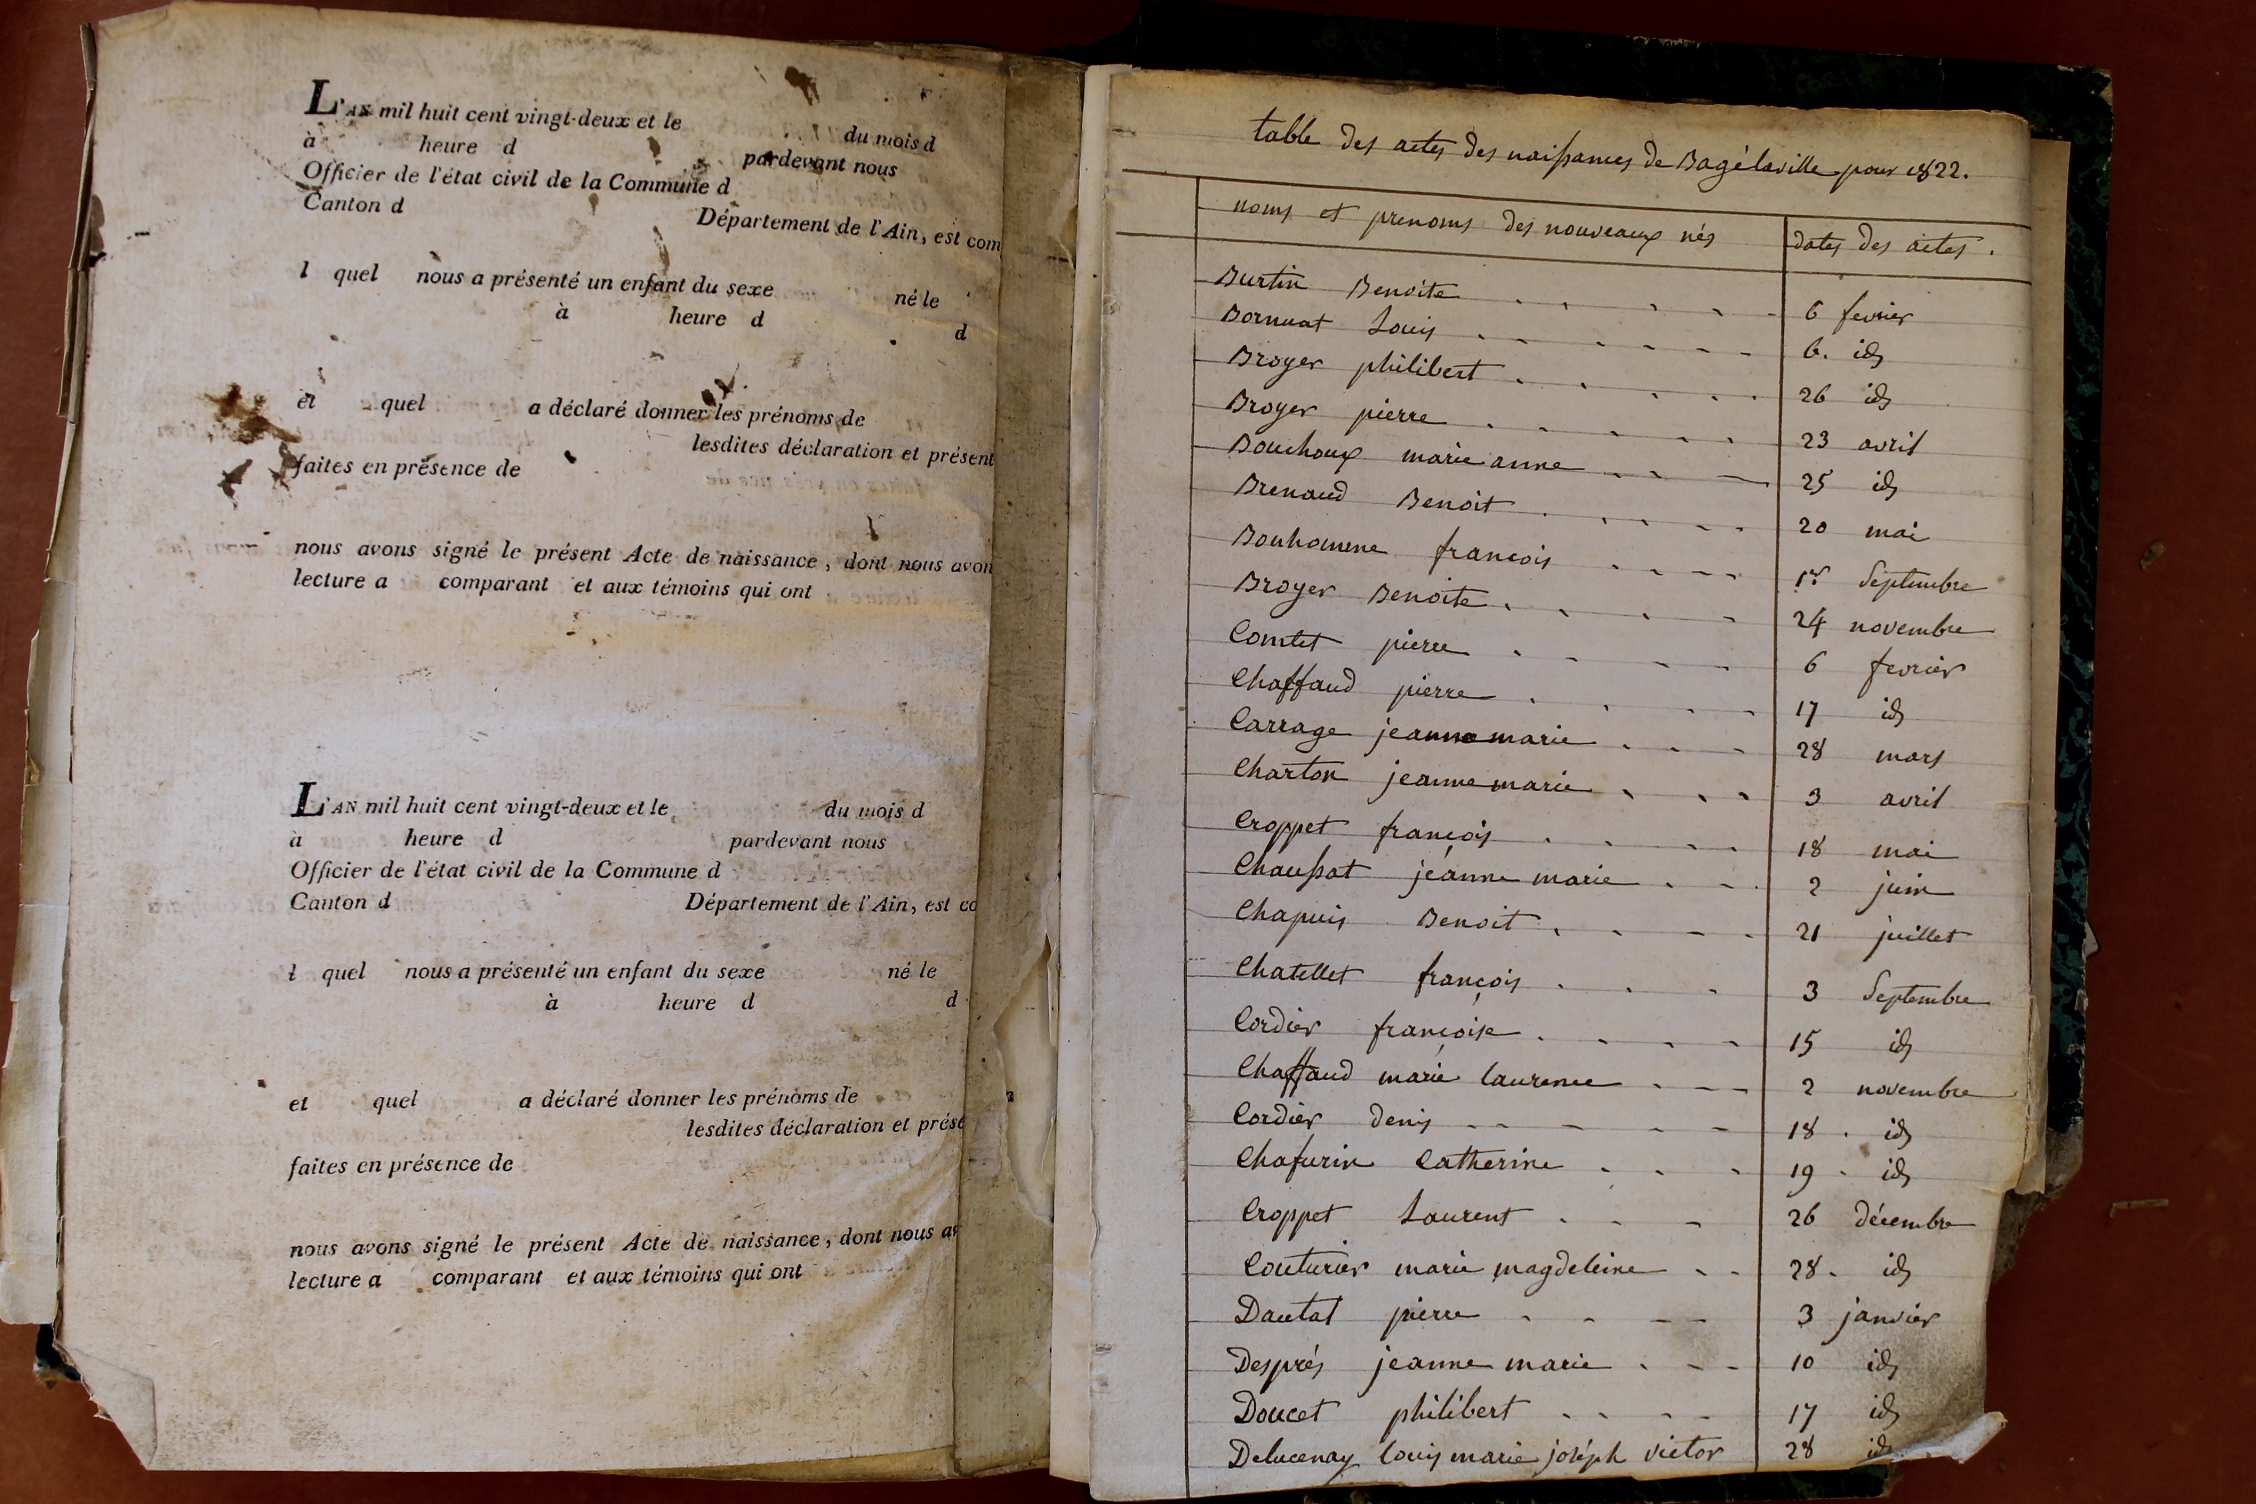 L'AN mil huit cent vingt-deux et le du mois d
à heure d pardevant nous
Officier de l'état civil de la Commune d
Canton d Département de l'Ain, est com
l quel nous a présenté un enfant du sexe né le
à heure d d
et quel a déclaré donner les prénoms de
lesdites déclaration et présent
faites en présence de
nous avons signé le présent Acte de naissance, dont nous avon
lecture a comparant et aux témoins qui ont
L'AN mil huit cent vingt-deux et le du mois d
à heure d pardevant nous
Officier de l'état civil de la Commune d
Canton d Département de l'Ain, est co
l quel nous a présenté un enfant du sexe né le
à heure d d
et quel a déclaré donner les prénoms de
lesdites déclaration et prése
faites en présence de
nous avons signé le présent Acte de naissance, dont nous av
lecture a comparant et aux témoins qui ont
table des actes des naissances de Bagélaville pour 1822.
noms et prenoms des nouveaux nés dates des actes.
Burtin Benoite 6 fevrier
Bornuat Louis 6. id
Broyer philibert 26 id
Broyer pierre 23 avril
Bouchoux marie anne 25 id
Brenaud Benoit 20 mai
Bonhomme francois 1er Septembre
Broyer Benoite 24 novembre
Comtet pierre 6 fevrier
Chaffaud pierre 17 id
Carrage jeanne marie 28 mars
Charton jeanne marie 3 avril
Croppet françois 18 mai
Chaussat jeanne marie 2 juin
Chapuis Benoit 21 juillet
Chatellet françois 3 Septembre
Cordier françoise 15 id
Chaffaud marie laurence 2 novembre
Cordier denis 18. id
Chafurin Catherine 19. id
Croppet Laurent 26 décembre
Couturier marie magdeleine 28. id
Dautat pierre 3 janvier
Després jeanne marie 10 id
Doucet philibert 17 id
Delucenay louis marie joséph victor 28 id